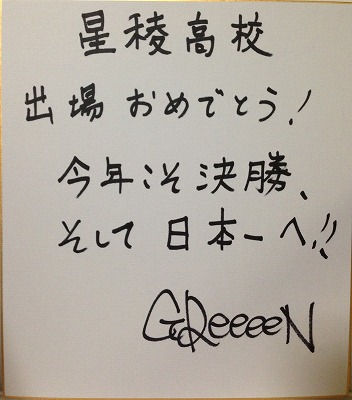 星稜高校
出場 おめでとう!
今年こそ決勝、
そして 日本一へ!!
GReeeeN